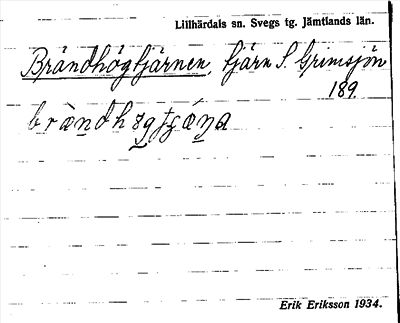 Lillhärdals sn. Svegs tg. Jämtlands län.
Brändhögtjärnen, tjärn S. Grimsjön
189.
Erik Eriksson 1934.